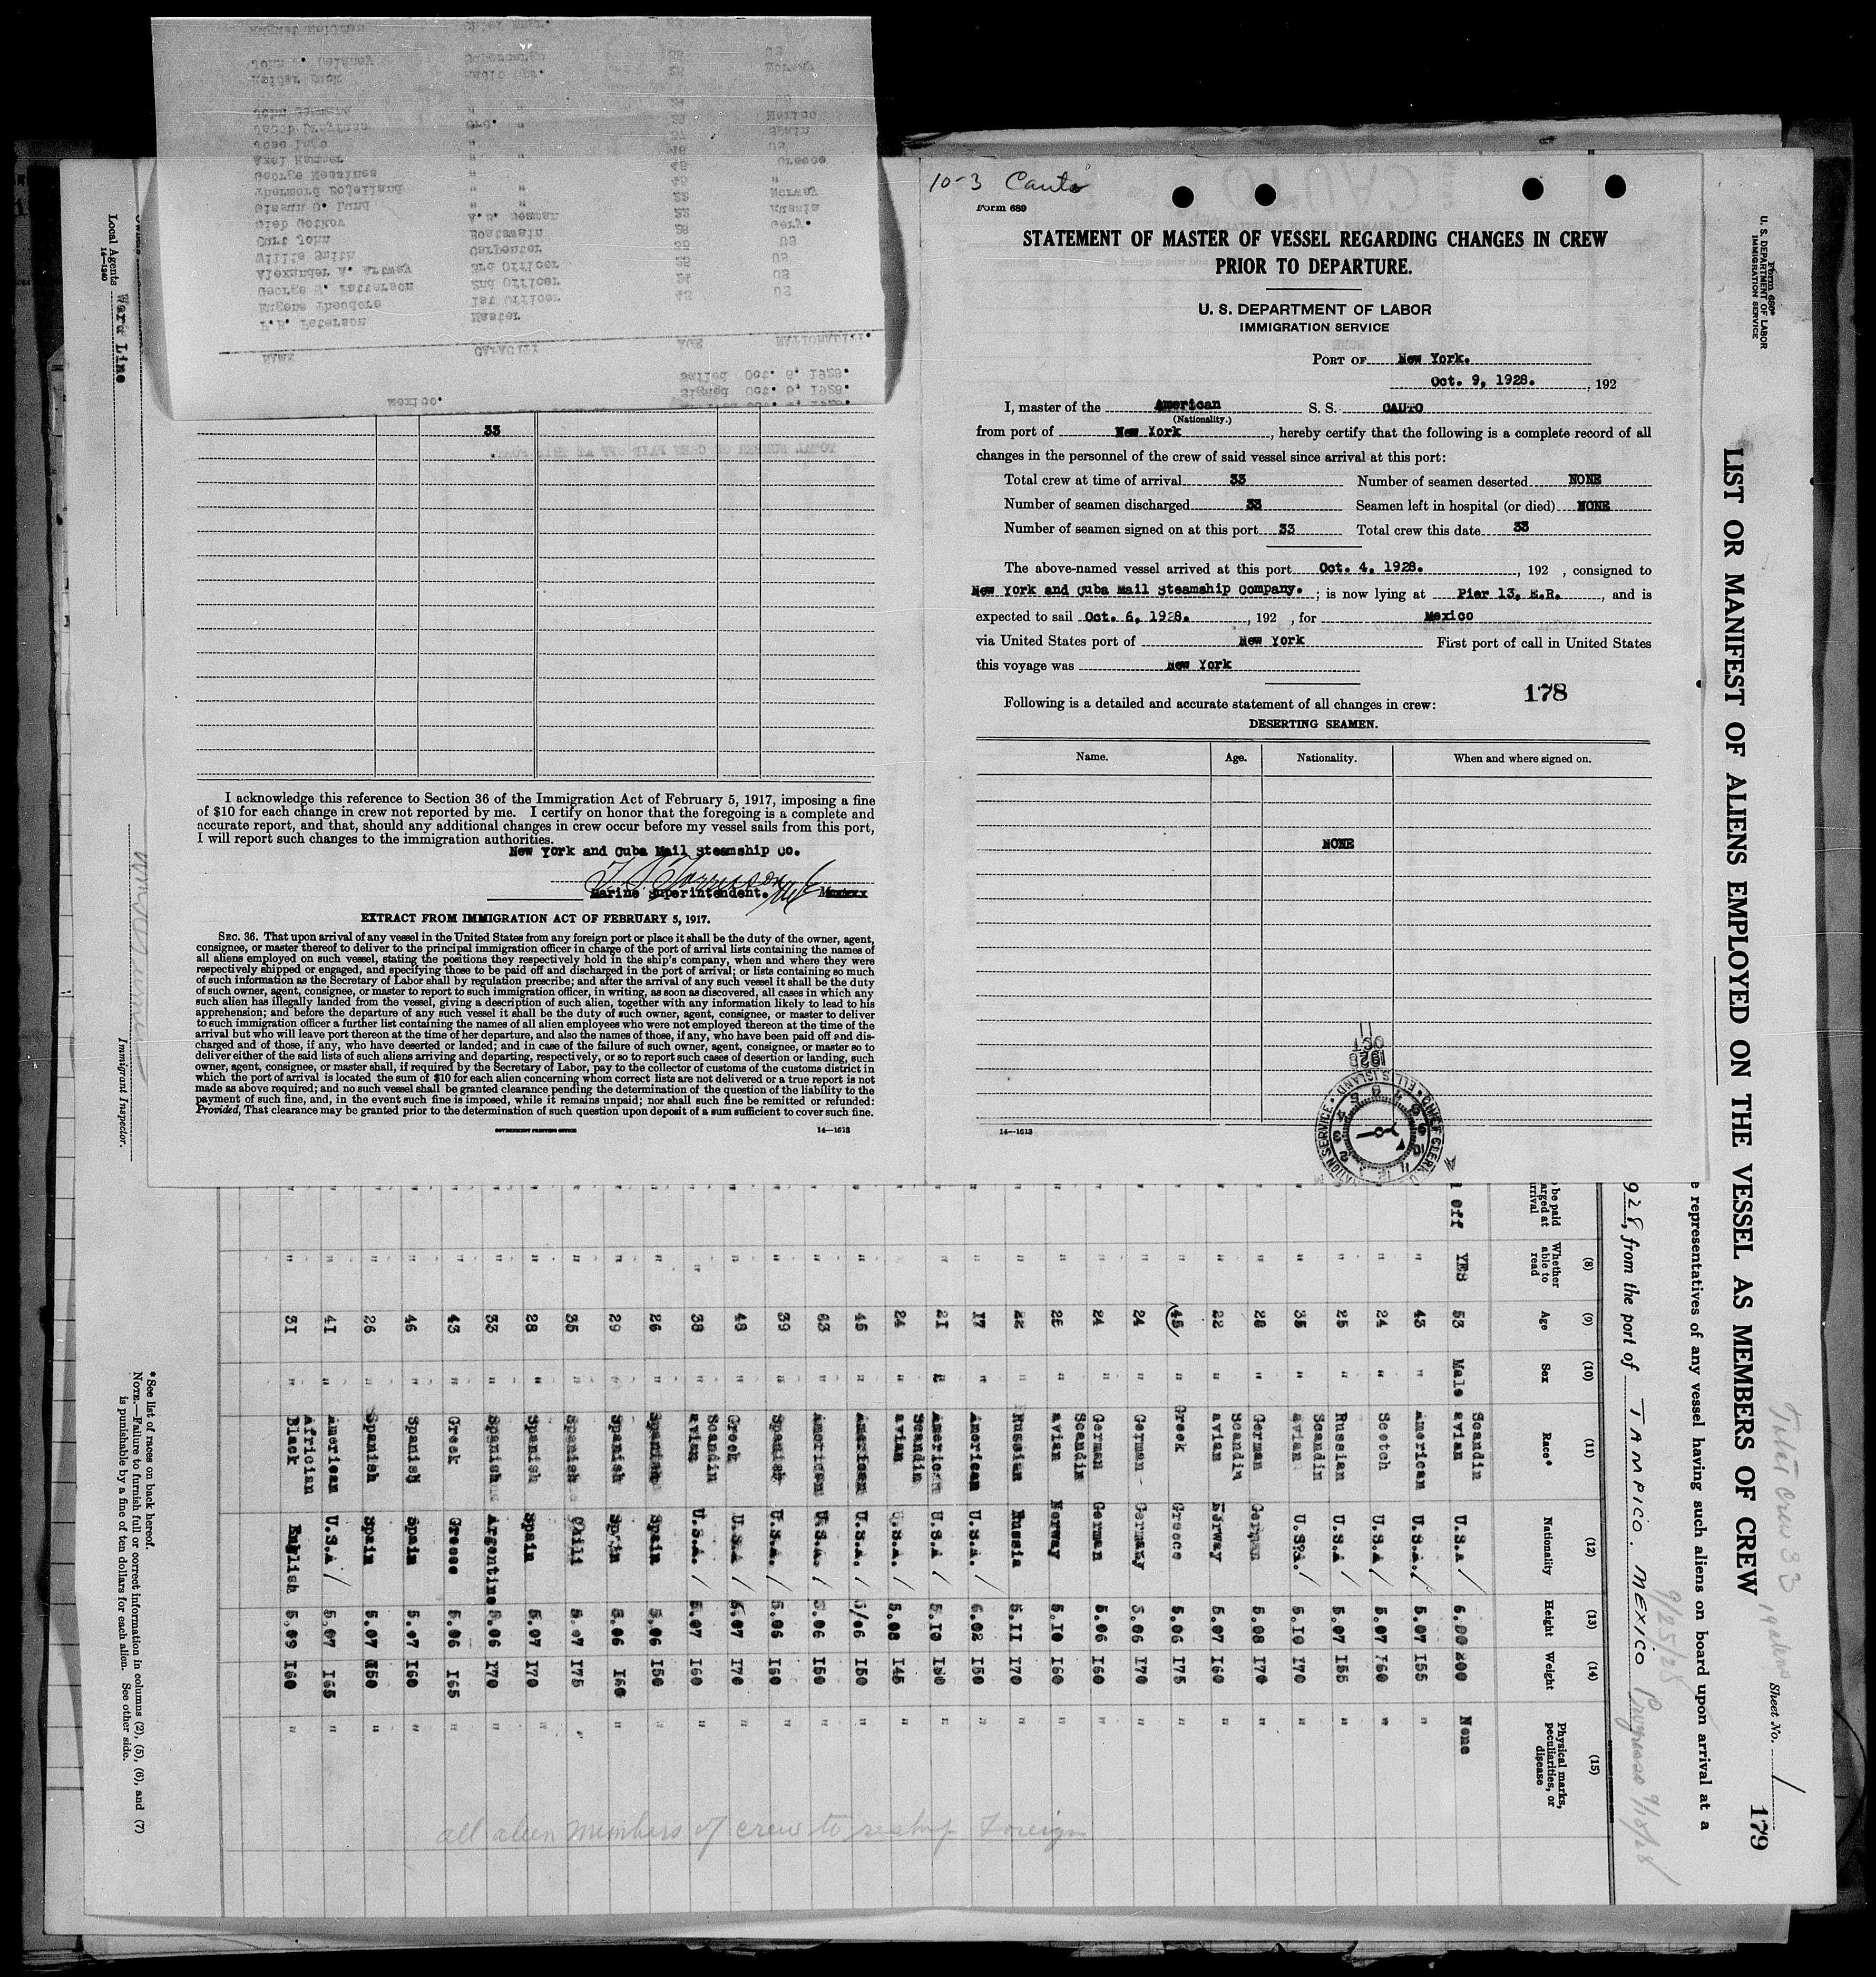 10-3 Cauto
Form 689
STATEMENT OF MASTER OF VESSEL REGARDING CHANGES IN CREW
PRIOR TO DEPARTURE.
U. S. DEPARTMENT OF LABOR
IMMIGRATION SERVICE
PORT OF New York.
Oct. 9, 1928. , 192
I, master of the American S. S. CAUTO
(Nationality.)
from port of New York , hereby certify that the following is a complete record of all
changes in the personnel of the crew of said vessel since arrival at this port:
Total crew at time of arrival 33 Number of seamen deserted NONE
Number of seamen discharged 33 Seamen left in hospital (or died) NONE
Number of seamen signed on at this port 33 Total crew this date 33
The above-named vessel arrived at this port Oct. 4, 1928. , 192 , consigned to
New York and Cuba Mail Steamship Company. ; is now lying at Pier 13, E.R. , and is
expected to sail Oct. 6, 1928. , 192 , for Mexico
via United States port of New York First port of call in United States
this voyage was New York
178
Following is a detailed and accurate statement of all changes in crew:
DESERTING SEAMEN.
Name. Age. Nationality. When and where signed on.
NONE
14—1613
11
OCT
1928
33
I acknowledge this reference to Section 36 of the Immigration Act of February 5, 1917, imposing a fine
of $10 for each change in crew not reported by me. I certify on honor that the foregoing is a complete and
accurate report, and that, should any additional changes in crew occur before my vessel sails from this port,
I will report such changes to the immigration authorities.
New York and Cuba Mail Steamship Co.
Marine Superintendent.
EXTRACT FROM IMMIGRATION ACT OF FEBRUARY 5, 1917.
SEC. 36. That upon arrival of any vessel in the United States from any foreign port or place it shall be the duty of the owner, agent,
consignee, or master thereof to deliver to the principal immigration officer in charge of the port of arrival lists containing the names of
all aliens employed on such vessel, stating the positions they respectively hold in the ship's company, when and where they were
respectively shipped or engaged, and specifying those to be paid off and discharged in the port of arrival; or lists containing so much
of such information as the Secretary of Labor shall by regulation prescribe; and after the arrival of any such vessel it shall be the duty
of such owner, agent, consignee, or master to report to such immigration officer, in writing, as soon as discovered, all cases in which any
such alien has illegally landed from the vessel, giving a description of such alien, together with any information likely to lead to his
apprehension; and before the departure of any such vessel it shall be the duty of such owner, agent, consignee, or master to deliver
to such immigration officer a further list containing the names of all alien employees who were not employed thereon at the time of the
arrival but who will leave port thereon at the time of her departure, and also the names of those, if any, who have been paid off and dis-
charged and of those, if any, who have deserted or landed; and in case of the failure of such owner, agent, consignee, or master so to
deliver either of the said lists of such aliens arriving and departing, respectively, or so to report such cases of desertion or landing, such
owner, agent, consignee, or master shall, if required by the Secretary of Labor, pay to the collector of customs of the customs district in
which the port of arrival is located the sum of $10 for each alien concerning whom correct lists are not delivered or a true report is not
made as above required; and no such vessel shall be granted clearance pending the determination of the question of the liability to the
payment of such fine, and, in the event such fine is imposed, while it remains unpaid; nor shall such fine be remitted or refunded:
Provided, That clearance may be granted prior to the determination of such question upon deposit of a sum sufficient to cover such fine.
GOVERNMENT PRINTING OFFICE
14—1613
U. S. DEPARTMENT OF LABOR
IMMIGRATION SERVICE
LIST OR MANIFEST OF ALIENS EMPLOYED ON THE VESSEL AS MEMBERS OF CREW
Sheet No. 1
179
Total crew 33 19 aliens
e representatives of any vessel having such aliens on board upon arrival at a
928, from the port of TAMPICO. MEXICO Progreso 9/18/28
9/25/28
(8) (9) (10) (11) (12) (13) (14) (15)
Whether able to read Age Sex Race* Nationality Height Weight Physical marks, peculiarities, or disease
off YES 53 Male Scandin avian U.S.A 6.00 200 None
" 43 " American U.S.A. 5.07 155 "
" 24 " Scotch U.S.A 5.07 160 "
" 25 " Russian U.S.A 5.07 155 "
" 35 " Scandin avian U.S.A. 5.10 170 "
" 28 " German German 5.08 170 "
" 22 " Scandin avian Norway 5.07 160 "
" 45 " Greek Greece 5.06 175 "
" 24 " German Germany 5.06 170 "
" 24 " German German 5.06 160 "
" 22 " Scandin avian Norway 5.10 160 "
" 22 " Russian Russia 5.11 170 "
" 17 " American U.S.A. 6.02 150 "
" 21 " American U.S.A 5.10 190 "
" 24 " Scandin avian U.S.A. 5.08 145 "
" 45 " American U.S.A. 5/06 150 "
" 63 " American U.S.A. 5.06 150 "
" 39 " Spanish U.S.A. 5.06 160 "
" 48 " Greek U.S.A 5.07 170 "
" 38 " Scandin avian U.S.A. 5.07 160 "
" 26 " Spanish Spain 5.06 150 "
" 29 " Spanish Spain 5.06 160 "
" 35 " Spanish Chili 5.07 175 "
" 28 " Spanish Spain 5.07 170 "
" 33 " Spanish Argentine 5.06 170 "
" 43 " Greek Greece 5.06 165 "
" 46 " Spanish Spain 5.07 160 "
" 26 " Spanish Spain 5.07 150 "
" 41 " American U.S.A 5.07 165 "
" 31 " Africian Black English 5.09 160 "
all alien members of crew to reship Foreign
* See list of races on back hereof.
NOTE.—Failure to furnish full or correct information in columns (2), (5), (6), and (7)
is punishable by a fine of ten dollars for each alien. See other side.
Immigrant Inspector.
Local Agents Ward Line
14—1240
Mexico.
Signed Oct. 5, 1928.
Sailed Oct. 6, 1928.
NAME CAPACITY AGE NATIONALITY.
Master
Eugene Theodore 1st Officer 43 US
George W. Patterson 2nd Officer 24 US
Alexander W. Artway 3rd Officer 25 US
Willie Smith Carpenter 35 US
Curt John Boatswain 28 Gery.
Gleb Botkov A.B. Seaman 22 Russia
Norway
George Messines 45 Greece